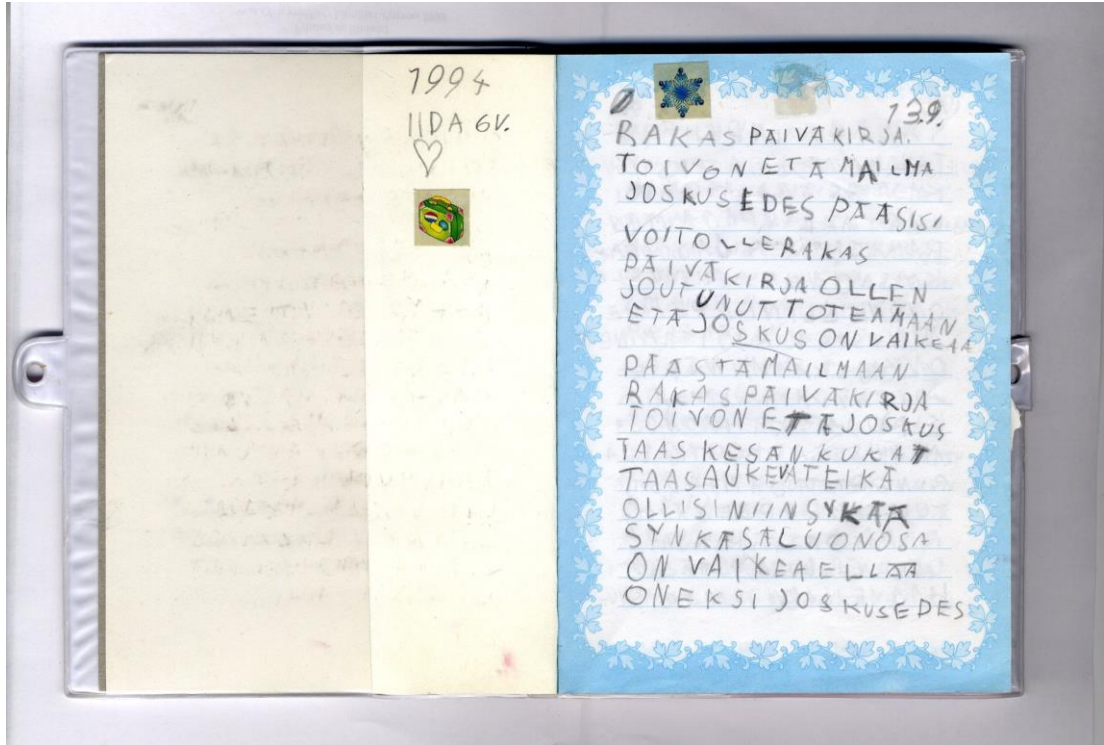 1994
IIDA 6V.
13.9.
RAKAS PÄIVÄKIRJA.
TOIVON ETÄ MAILMA
JOSKUS EDES PÄÄSISI
VOITOLLE RAKAS
PÄIVÄKIRJA OLLEN
JOUTUNUT TOTEAMAAN
ETÄ JOSKUS ON VAIKEAA
PÄÄSTÄ MAILMAAN
RAKAS PÄIVÄKIRJA
TOIVON ETÄ JOSKUS
TAAS KESÄN KUKAT
TAAS AUKEVAT EIKÄ
OLLISI NIIN SYKÄÄ
SYNKÄSÄ LUONOSA
ON VAIKEA ELLÄÄ
ONEKSI JOSKUS EDES